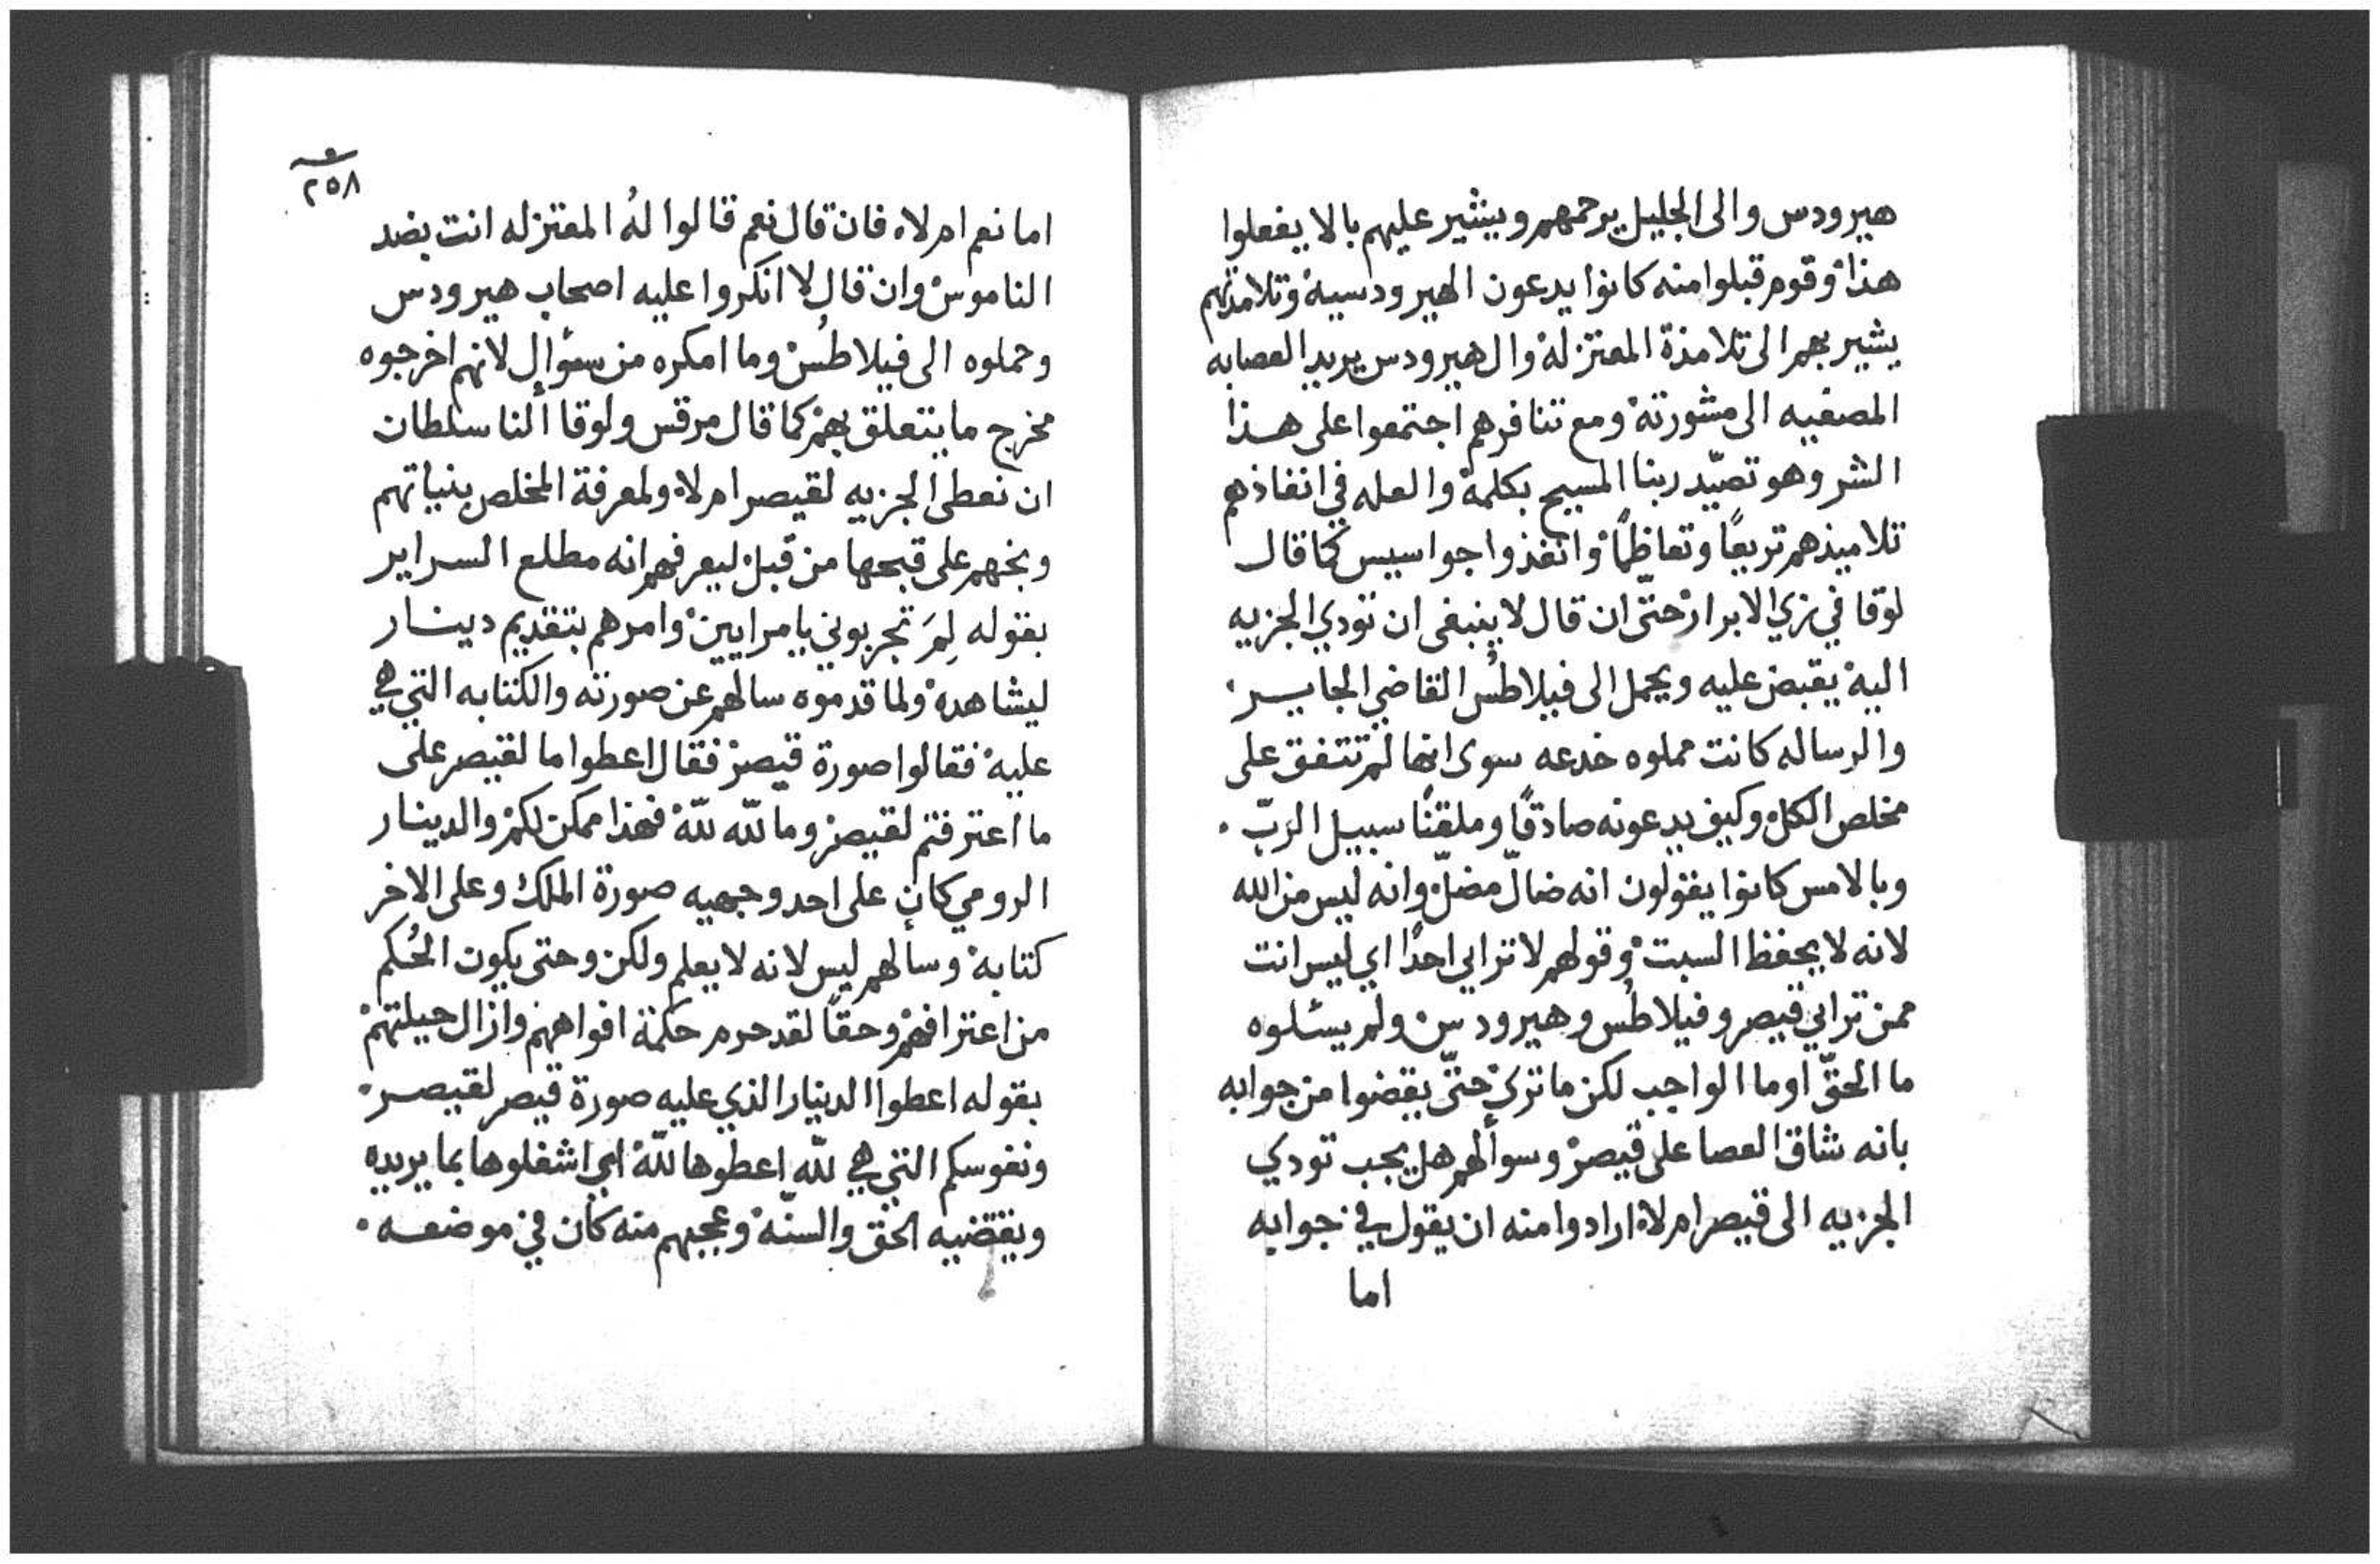 هيرودس والى الجليل يرحمهم ويشير عليهم بالا يفعلوا
هذا وقوم قبلوا منه كانوا يدعون الهيرودسيه وتلامذتهم
يشير بهم الى تلامذة المعتزله وال هيرودس يريد العصابه
المصغيه الى مشورته ومع تنافرهم اجتمعوا على هذا
الشر وهو تصيّد ربنا المسيح بكلمه والعله في انفاذهم
تلاميذهم تربعًا وتعاظمًا وانفذوا جواسيس كما قال
لوقا في زي الابرار حتّى ان قال لا ينبغى ان نودي الجزيه
اليه يقبض عليه ويحمل الى فيلاطُس القاضي الجاير.
والرساله كانت مملوه خدعه سوى انها لم تتفق على
مخلص الكل وكيف يدعونه صادقًا وملقنًا سبيل الربّ.
وبالامس كانوا يقولون انه ضالّ مضلّ وانه ليس من الله
لانه لا يحفظ السبت وقولهم لا ترايى احدًا اي ليس انت
ممن ترايي قيصر وفيلاطُس وهيرودس ولم يسئلوه
ما الحقّ او ما الواجب لكن ما ترى حتّى يقضوا من جوابه
بانه شاق العصا على قيصر وسوألهم هل يجب تودي
الجزيه الى قيصر ام لا ارادوا منه ان يقول في جوابه
اما
٢٥٨
اما نعم ام لا فان قال نعم قالوا لهُ المعتزله انت بضد
الناموس وان قال لا انكروا عليه اصحاب هيرودس
وحملوه الى فيلاطُس وما امكره من سئوال لانهم اخرجوه
مخرج ما يتعلق بهم كما قال مرقس ولوقا ألنا سلطان
ان نعطى الجزيه لقيصر ام لا ولمعرفة المخلص بنياتهم
وبخهم على قبحها من قبل ليعرفهم انه مطلع السراير
بقوله لِمَ تجربوني يا مرايين وامرهم بتقديم دينار
ليشاهده ولما قدموه سالهم عن صورته والكتابه التي هي
عليه فقالوا صورة قيصر فقال اعطوا ما لقيصر على
ما اعترفتم لقيصر وما للّه للّه فهذا ممكن لكم والدينار
الرومي كان على احد وجهيه صورة الملك وعلى الاخر
كتابه وسألهم ليس لانه لا يعلم ولكن وحتى يكون الحُكم
من اعترافهم وحقًا لقد حرم حكمة افواههم وازال حيلتهم
بقوله اعطوا الدينار الذي عليه صورة قيصر لقيصر.
ونفوسكم التي هي للّه اعطوها للّه اي اشغلوها بما يريده
ويقتضيه الحق والسنّه وعجبهم منه كان في موضعه.